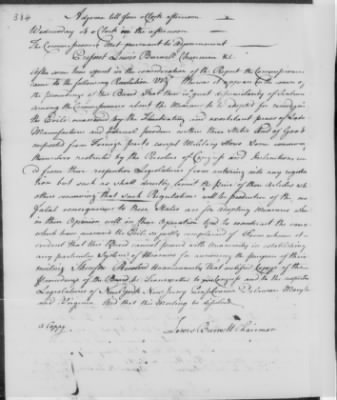 384
Adjourned till four o Clock afternoon
Wednesday 4 o Clock in the afternoon
The Commissioners met pursuant to Adjournment
Present Lewis Burwell Chairman &c
After some time spent in the consideration of the Report the Commissioners
came to the following Resolution Viz. Whereas it appears in the course of
the proceedings of this Board that there is great dissimilarity of
among the Commissioners about the Measures to be adopted for remedying
the Evils occasioned by the fluctuating and exorbitant prices of
Manufacture and internal produce within these States And of Goods
imported from Foreign parts except Military Stores Some
themselves restricted by the Resolve of Congress and Instructions
from their respective Legislatures from entering into any
but such as shall the price of those Articles
others conceiving that such Regulations will be productive of the
fatal consequences to these States are for adopting Measures which
in their Opinion will in their Operation tend to counteract the
which have the Evils so justly complained of From whence it
evident that this Board cannot proceed with unanimity in establishing
any particular System of Measures for answering the purposes of their
meeting Therefore Resolved Unanimously that certified Copies of the
Proceedings of the Board be transmitted to Congress and to the respective
Legislatures of New York New Jersey Pennsylvania Delaware Maryland
and Virginia And that this Meeting be dissolved
A Coppy
Lewis Burwell Chairman